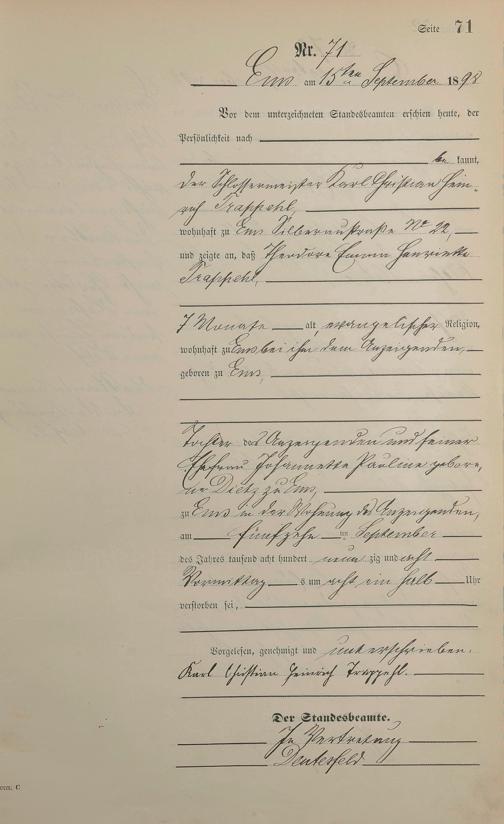 Seite 71
Nr. 71
Ems am 15ten September 1898
Vor dem unterzeichneten Standesbeamten erschien heute, der
Persönlichkeit nach
be kannt,
der Schlossermeister Karl Christian Hein-
rich Trappehl,
wohnhaft zu Ems Silberaustraße No 22,
und zeigte an, daß Theodore Emma Henriette
Trappehl,
7 Monate alt, evangelischer Religion,
wohnhaft zu Ems bei ihm dem Anzeigenden,
geboren zu Ems,
Tochter des Anzeigenden und seiner
Ehefrau Johannette Pauline gebore-
ne Dietz zu Ems,
zu Ems in der Wohnung des Anzeigenden,
am fünfzehn ten September
des Jahres tausend acht hundert neun zig und acht
Vormittag s um acht ein halb Uhr
verstorben sei,
Vorgelesen, genehmigt und unterschrieben.
Karl Christian Heinrich Trappehl.
Der Standesbeamte.
In Vertretung